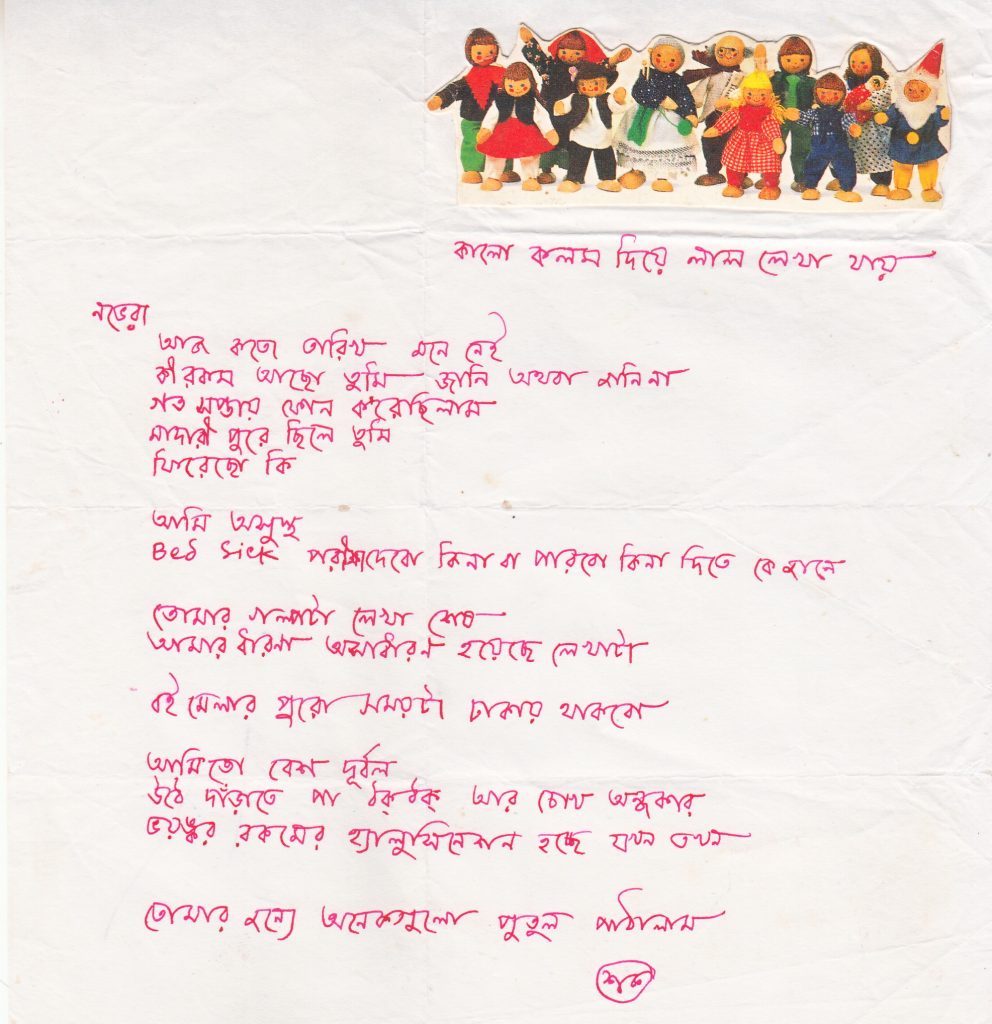 কালো কলম দিয়ে লাল লেখা যায়
নভেরা
আজ কতো তারিখ মনে নেই
কীরকম আছো তুমি জানি অথবা জানিনা
গত সপ্তায় ফোন করেছিলাম
মাদারীপুরে ছিলে তুমি
ফিরেছো কি
আমি অসুস্থ
Bed Sick পরীক্ষাদেবো কিনা বা পারবো কিনা দিতে কে জানে
তোমার গল্পটা লেখা শেষ
আমার ধারনা অসাধারন হয়েছে লেখাটা
বই মেলার পুরো সময়টা ঢাকায় থাকবো
আমিতো বেশ দূর্বল
উঠে দাঁড়াতে পা ঠক্ঠক্ আর চোখ অন্ধকার
ভয়ঙ্কর রকমের হ্যালুসিনেশন হচ্ছে যখন তখন
তোমার জন্যে অনেকগুলো পুতুল পাঠালাম